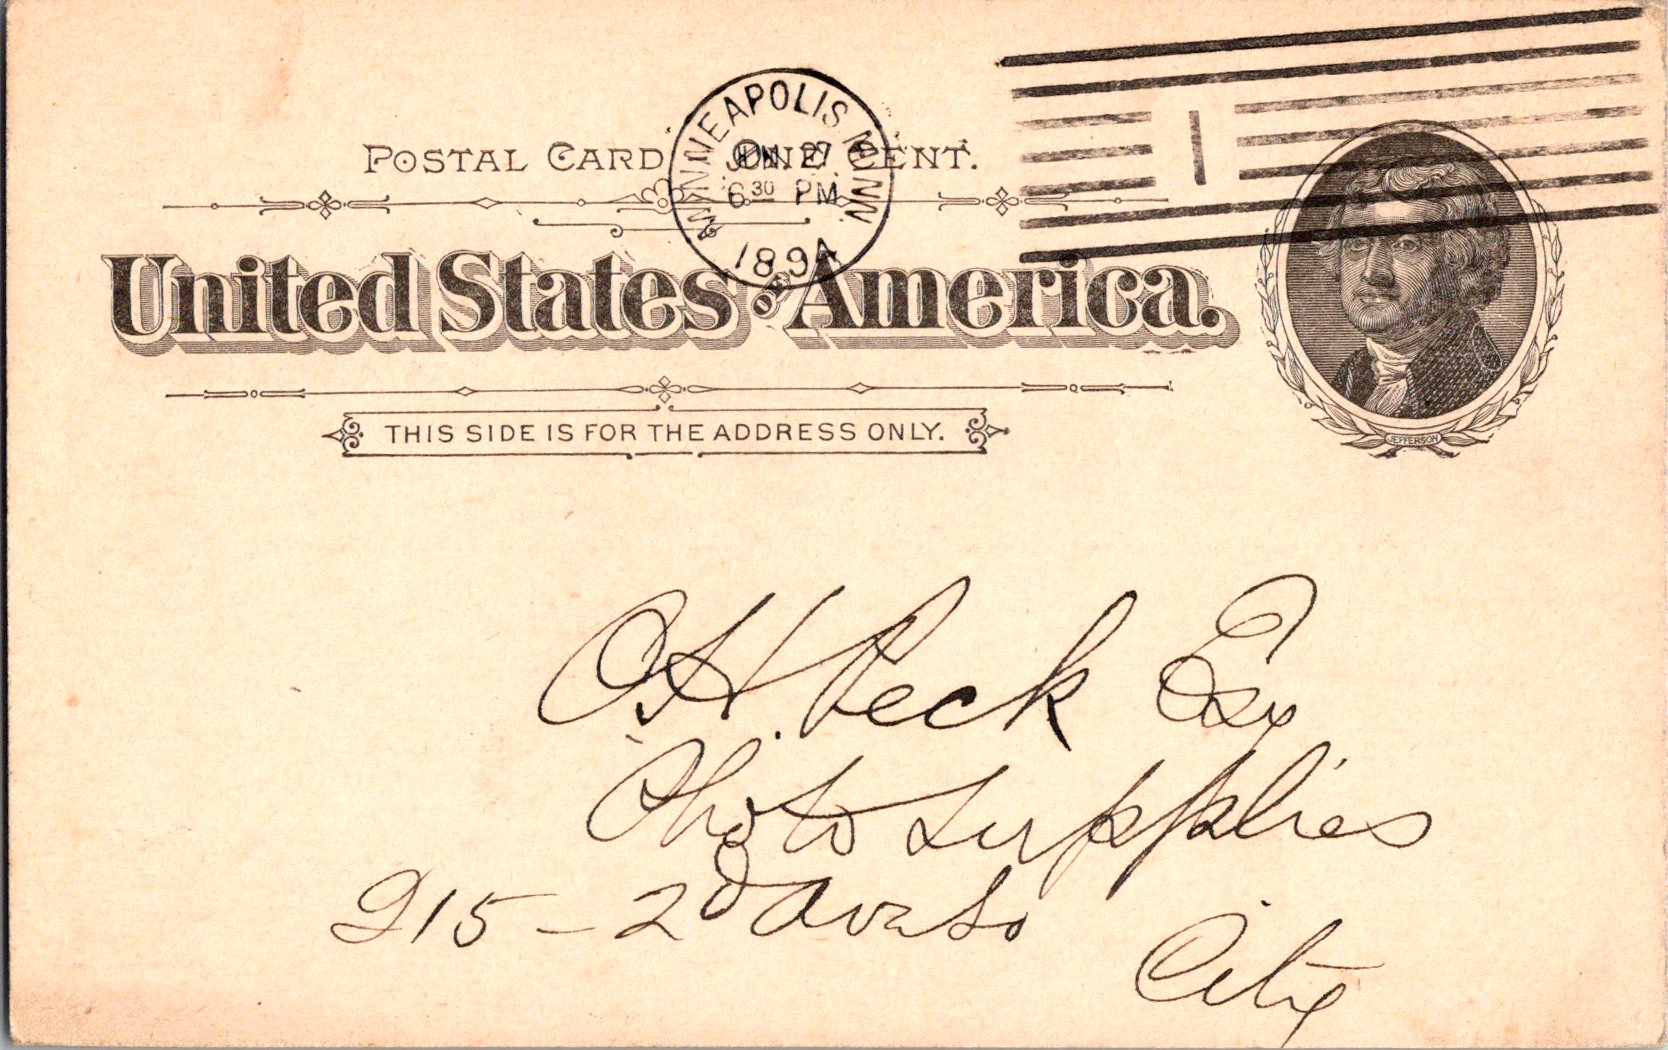 MINNEAPOLIS MINN.
JUN 27
6 30 PM
1894
1
POSTAL CARD ONE CENT.
United States of America.
JEFFERSON
THIS SIDE IS FOR THE ADDRESS ONLY.
O.H. Peck Esq
Photo Supplies
215 - 2d Ave So
City